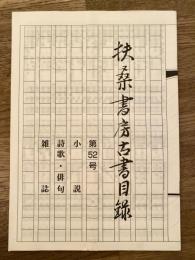 扶桑書房古書目録
第52号
小説
詩歌・俳句
雑誌